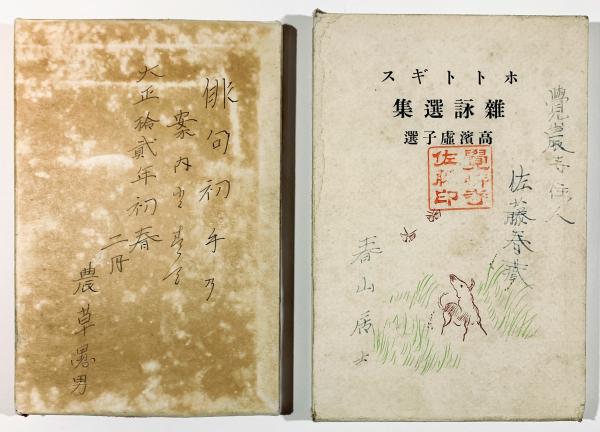 俳句初手乃
案内
大正拾貳年初春
二冊
農草愚男
ホトトギス
雜詠選集
高濱虛子選
佐藤印
覺巖寺住人
佐藤春藏
春山居士